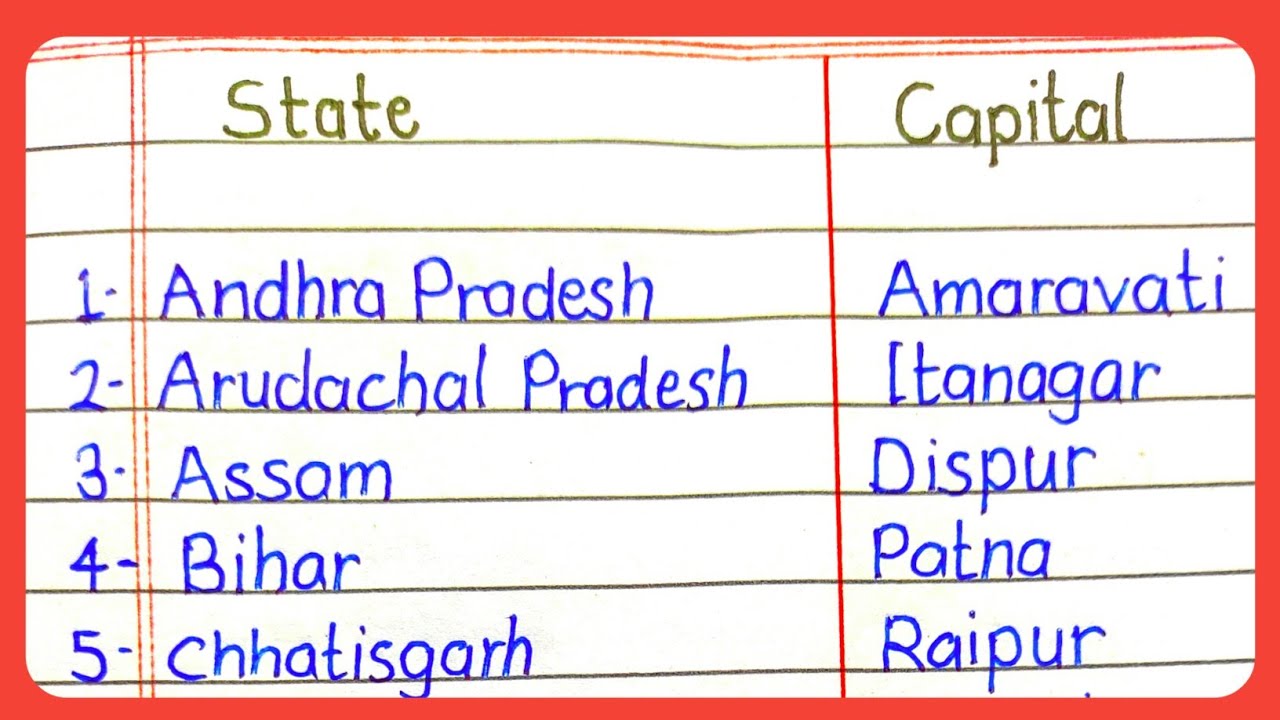 State Capital
1- Andhra Pradesh Amaravati
2- Arudachal Pradesh Itanagar
3- Assam Dispur
4- Bihar Patna
5- Chhatisgarh Raipur